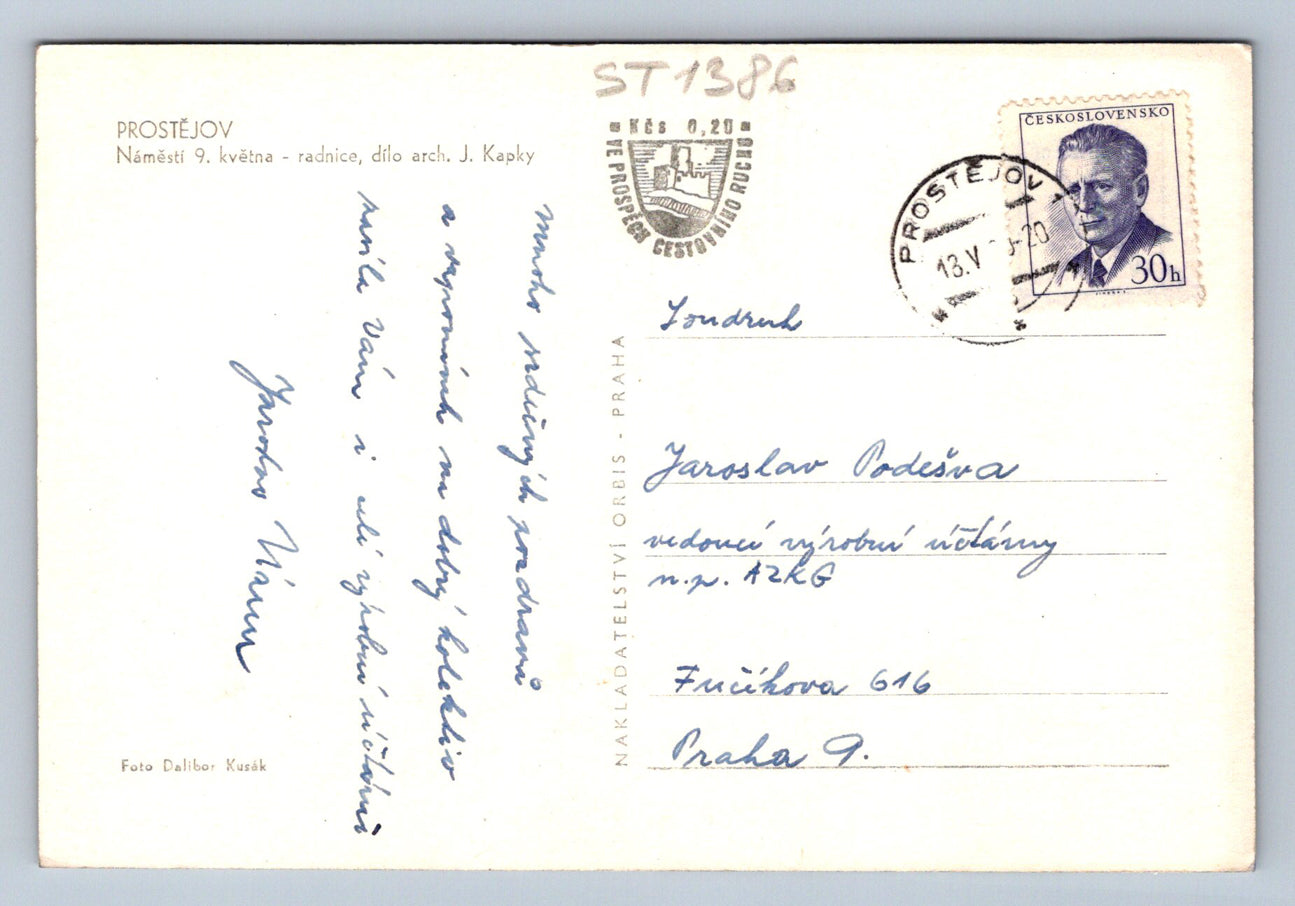 ST1386
PROSTĚJOV
Náměstí 9. května - radnice, dílo arch. J. Kapky
Kčs 0,20
VE PROSPĚCH CESTOVNÍHO RUCHU
ČESKOSLOVENSKO
30h
PROSTĚJOV 1
13.V -20
Mnoho srdečných pozdravů
a vzpomínek na dobrý kolektiv
Vám i celé výrobní účtárně
Soudruh
Jaroslav Podešva
vedoucí výrobní účtárny
n.p. AZKG
Fučíkova 616
Praha 9.
NAKLADATELSTVÍ ORBIS - PRAHA
Foto Dalibor Kusák